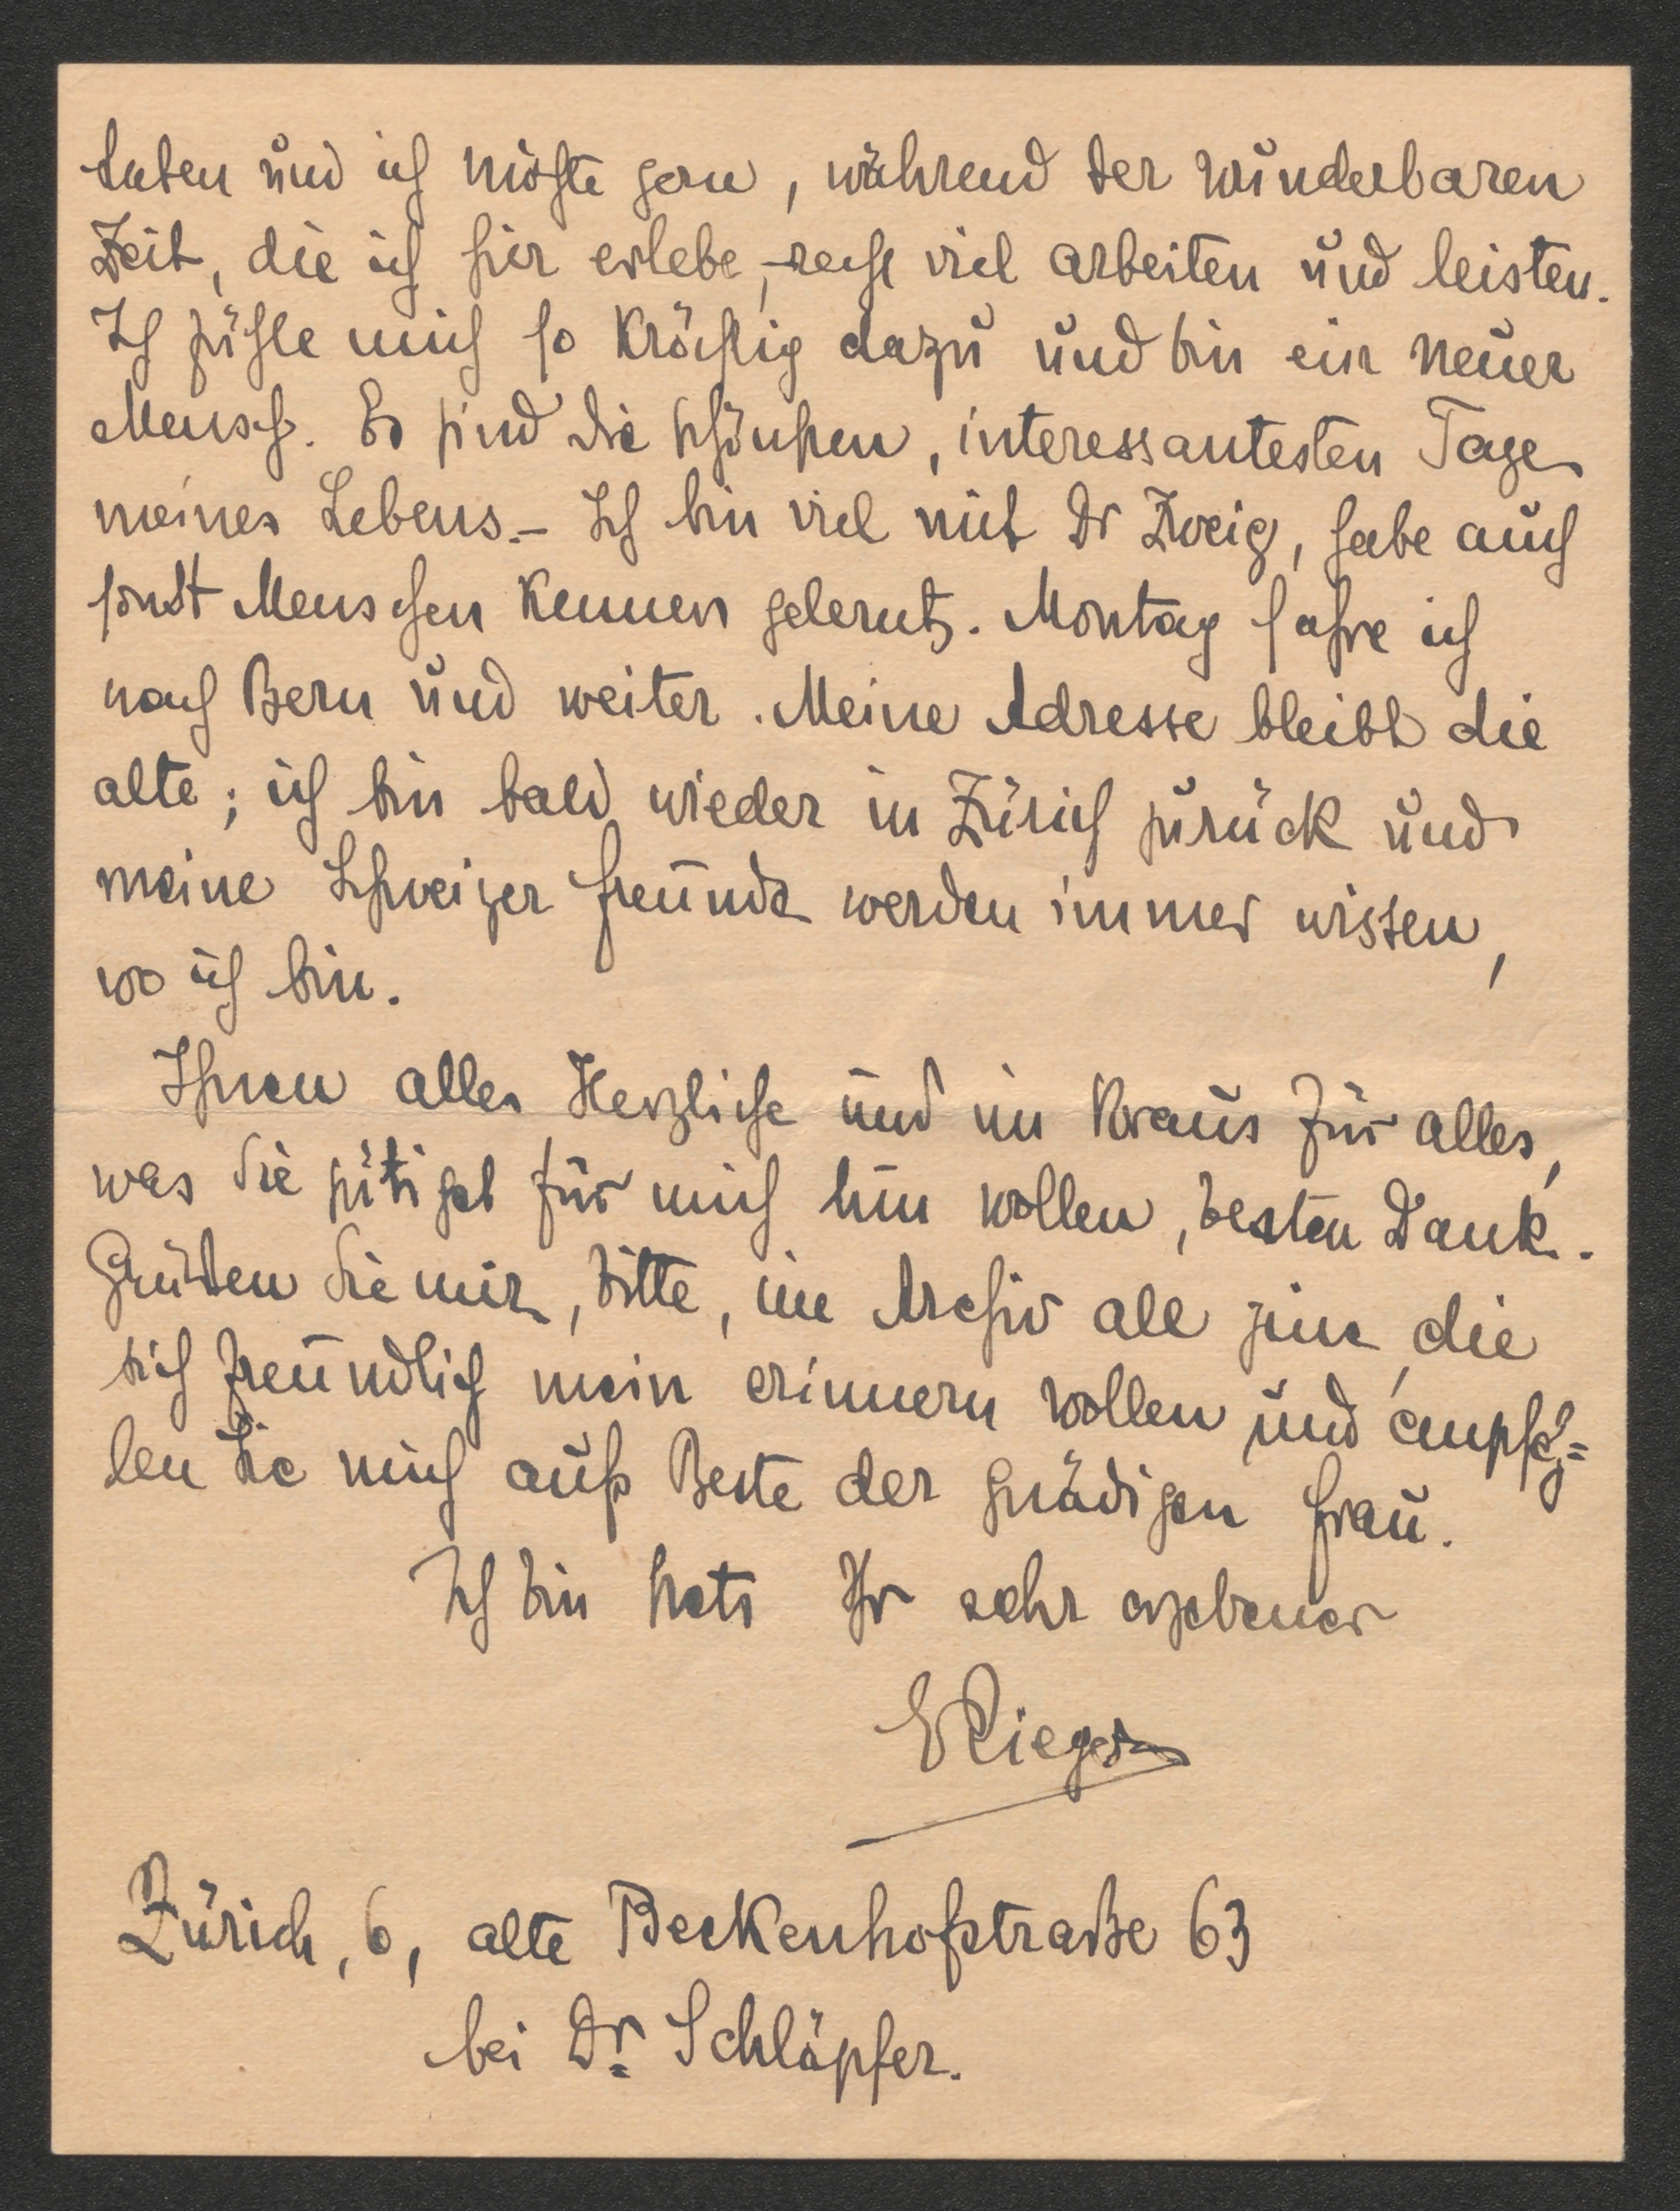 haben und ich möchte gern, während der wunderbaren
Zeit, die ich hier erlebe, recht viel arbeiten und leisten.
Ich fühle mich so kräftig dazu und bin ein neuer
Mensch. Es sind die schönsten, interessantesten Tage
meines Lebens. – Ich bin viel mit Dr Zweig, habe auch
sonst Menschen kennen gelernt. Montag fahre ich
nach Bern und weiter. Meine Adresse bleibt die
alte; ich bin bald wieder in Zürich zurück und
meine Schweizer Freunde werden immer wissen,
wo ich bin.
Ihnen alles Herzliche und im Voraus für alles,
was Sie gütigst für mich tun wollen, besten Dank.
Grüßen Sie mir, bitte, im Archiv all jene, die
sich freundlich mein erinnern wollen und empfeh=
len Sie mich aufs Beste der gnädigen Frau.
Ich bin stets Ihr sehr ergebener
ERieger
Zürich, 6, alte Beckenhofstraße 63
bei Dr. Schläpfer.